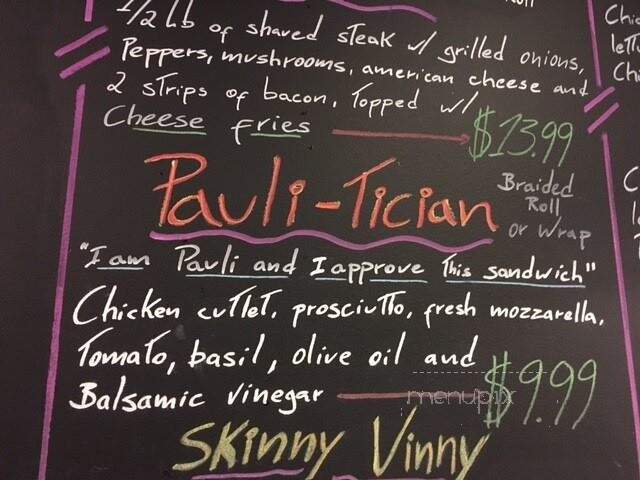 Roll
1/2 lb of shaved steak w/ grilled onions,
Peppers, mushrooms, american cheese and
2 strips of bacon, Topped w/
Cheese fries $13.99
Pauli-Tician
Braided
Roll
or Wrap
"I am Pauli and I approve This sandwich"
Chicken cutlet, prosciutto, fresh mozzarella,
Tomato, basil, olive oil and
Balsamic vinegar $9.99
menupix
Skinny Vinny